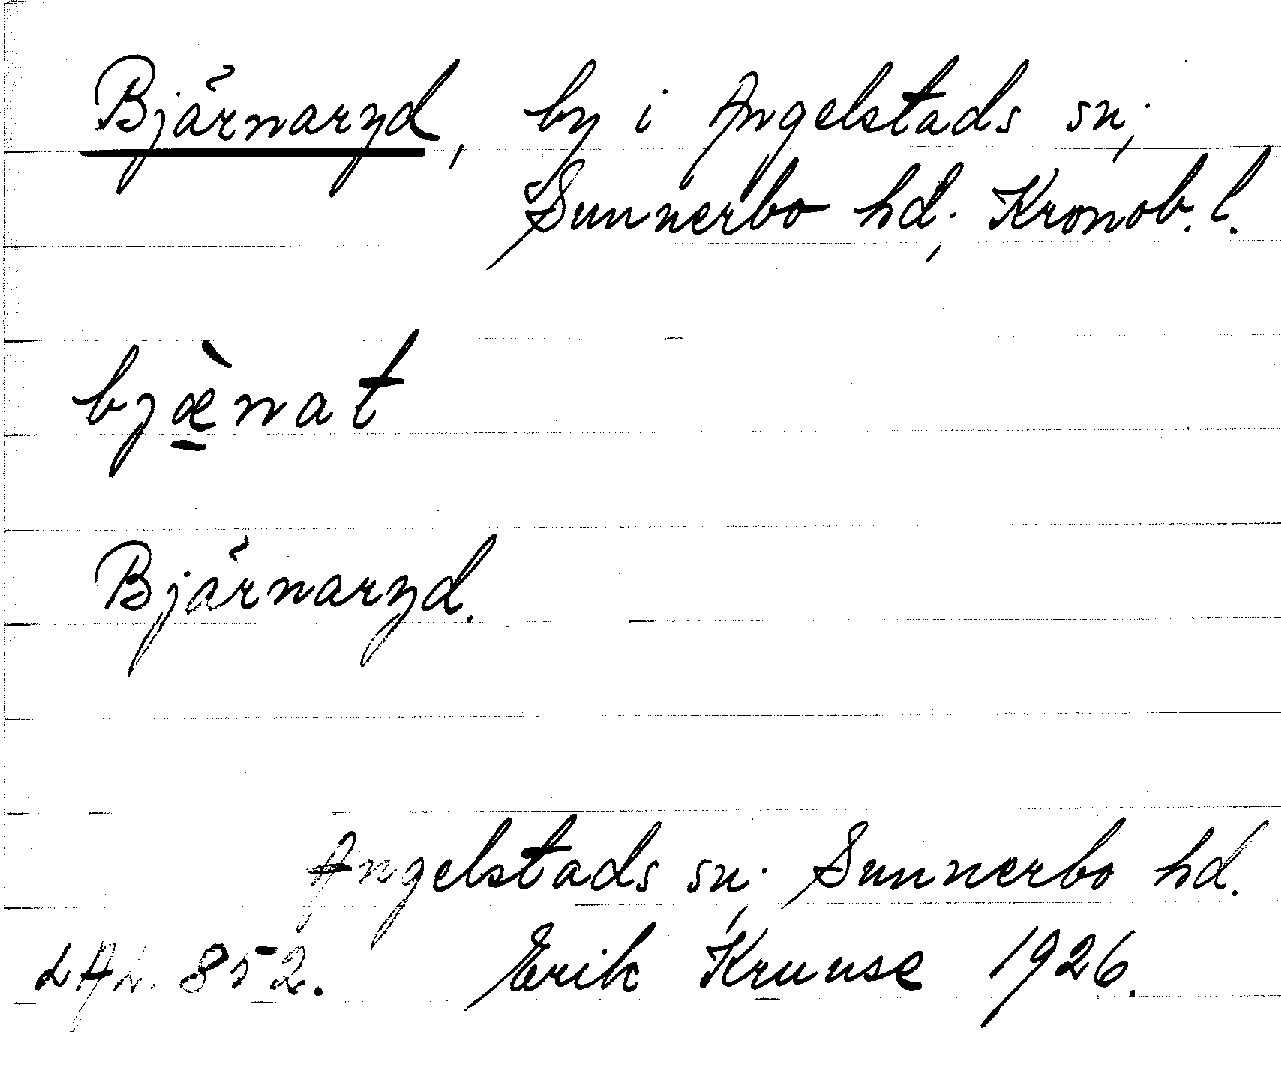 Bjärnaryd, by i Angelstads sn;
Sunnerbo hd; Kronob. l.
bjæ̠̀nat
Bjärnaryd.
Angelstads sn; Sunnerbo hd.
LAL. 852. Erik Kruuse 1926.